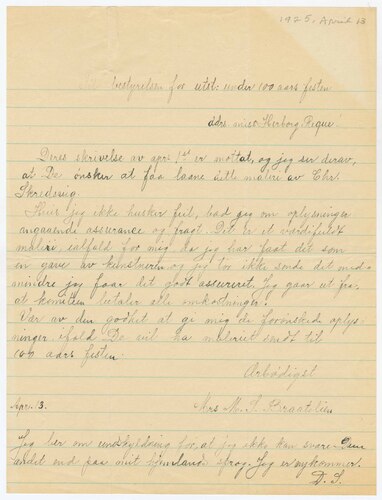 1925, April 13
Til bestyrelsen for utst: under 100 aars festen
adrs. miss Herborg Reque!
Deres skrivelse av apr. 1st er mottat, og jeg ser derav,
at De ønsker at faa laane dette maleri av Chr.
Skredsvig.
Hvis jeg ikke husker feil, bad jeg om oplysninger
angaaende assurance og fragt. Det er et værdifuldt
maleri, ialfald for mig, da jeg har faat det som
en gave av kunstneren og jeg tør ikke sende det med
mindre jeg faar det godt assureret. Jeg gaar ut fra,
at komiteen betaler alle omkostninger.
Vær av den godhet at gi mig de forønskede oplys-
ninger, ifald De vil ha maleriet sendt til
100 aars festen.
Ærbødigst
Apr. 13. Mrs M. S. Braatelien
Jeg ber om undskyldning for, at jeg ikke kan svare Dem
andet end paa mit hjemlands sprog. Jeg er nykommer.
D. S.